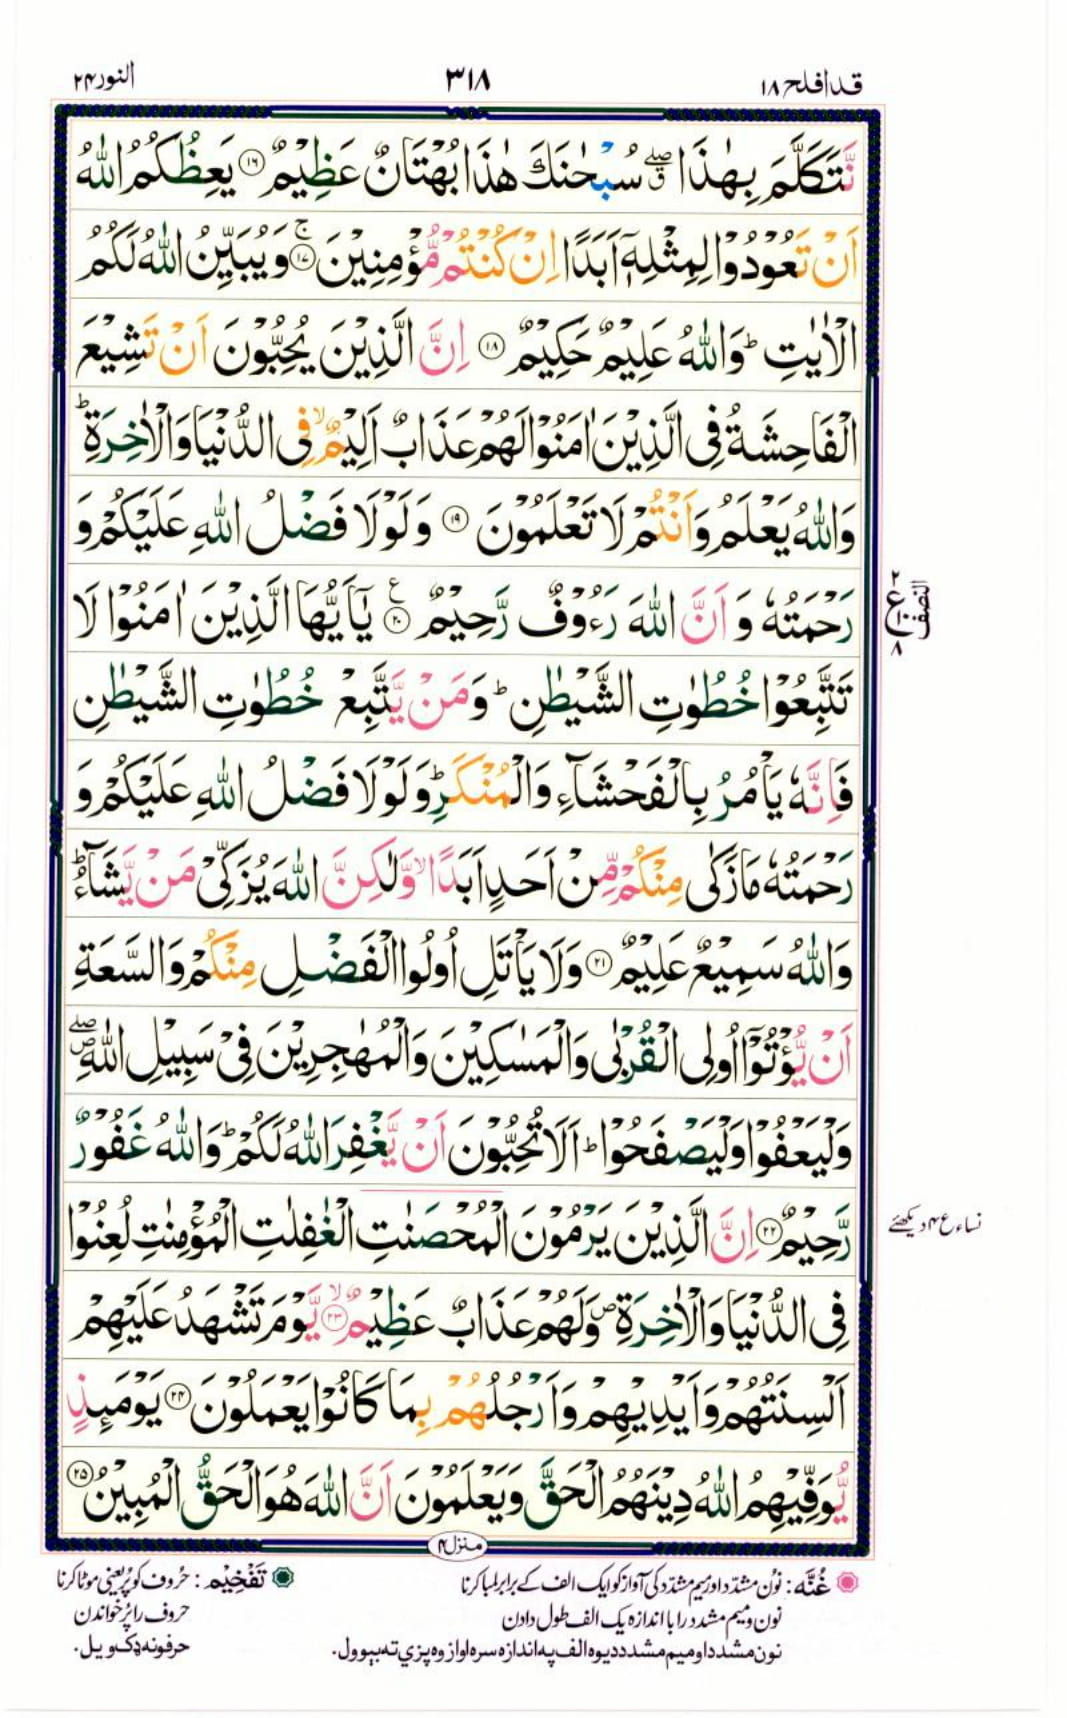 قدافلح ۱۸
۳۱۸
النور ۲۴
نَّتَكَلَّمَ بِهٰذَا ۖۗ سُبْحٰنَكَ هٰذَا بُهْتَانٌ عَظِيْمٌ ۝۱۶ يَعِظُكُمُ اللّٰهُ
اَنْ تَعُوْدُوْا لِمِثْلِهٖۤ اَبَدًا اِنْ كُنْتُمْ مُّؤْمِنِيْنَ ۝۱۷ۚ وَيُبَيِّنُ اللّٰهُ لَكُمُ
الْاٰيٰتِ ؕ وَاللّٰهُ عَلِيْمٌ حَكِيْمٌ ۝۱۸ اِنَّ الَّذِيْنَ يُحِبُّوْنَ اَنْ تَشِيْعَ
الْفَاحِشَةُ فِى الَّذِيْنَ اٰمَنُوْا لَهُمْ عَذَابٌ اَلِيْمٌ ۙ فِى الدُّنْيَا وَالْاٰخِرَةِ ؕ
وَاللّٰهُ يَعْلَمُ وَاَنْتُمْ لَا تَعْلَمُوْنَ ۝۱۹ وَلَوْلَا فَضْلُ اللّٰهِ عَلَيْكُمْ وَ
رَحْمَتُهٗ وَ اَنَّ اللّٰهَ رَءُوْفٌ رَّحِيْمٌ ۝۲۰ ع يٰۤاَيُّهَا الَّذِيْنَ اٰمَنُوْا لَا
النصف
۲
ع
۱۰
۸
تَتَّبِعُوْا خُطُوٰتِ الشَّيْطٰنِ ؕ وَمَنْ يَّتَّبِعْ خُطُوٰتِ الشَّيْطٰنِ
فَاِنَّهٗ يَاْمُرُ بِالْفَحْشَآءِ وَالْمُنْكَرِ ؕ وَلَوْلَا فَضْلُ اللّٰهِ عَلَيْكُمْ وَ
رَحْمَتُهٗ مَا زَكٰى مِنْكُمْ مِّنْ اَحَدٍ اَبَدًا ۙ وَّلٰكِنَّ اللّٰهَ يُزَكِّىْ مَنْ يَّشَآءُ ؕ
وَاللّٰهُ سَمِيْعٌ عَلِيْمٌ ۝۲۱ وَلَا يَاْتَلِ اُولُوا الْفَضْلِ مِنْكُمْ وَالسَّعَةِ
اَنْ يُّؤْتُوْۤا اُولِى الْقُرْبٰى وَالْمَسٰكِيْنَ وَالْمُهٰجِرِيْنَ فِىْ سَبِيْلِ اللّٰهِ ۖ
وَلْيَعْفُوْا وَلْيَصْفَحُوْا ؕ اَلَا تُحِبُّوْنَ اَنْ يَّغْفِرَ اللّٰهُ لَكُمْ ؕ وَاللّٰهُ غَفُوْرٌ
رَّحِيْمٌ ۝۲۲ اِنَّ الَّذِيْنَ يَرْمُوْنَ الْمُحْصَنٰتِ الْغٰفِلٰتِ الْمُؤْمِنٰتِ لُعِنُوْا
نساء ع ۴ دیکھئے
فِى الدُّنْيَا وَالْاٰخِرَةِ ۪ وَلَهُمْ عَذَابٌ عَظِيْمٌ ۝۲۳ۙ يَّوْمَ تَشْهَدُ عَلَيْهِمْ
اَلْسِنَتُهُمْ وَاَيْدِيْهِمْ وَاَرْجُلُهُمْ بِمَا كَانُوْا يَعْمَلُوْنَ ۝۲۴ يَوْمَئِذٍ
يُّوَفِّيْهِمُ اللّٰهُ دِيْنَهُمُ الْحَقَّ وَيَعْلَمُوْنَ اَنَّ اللّٰهَ هُوَ الْحَقُّ الْمُبِيْنُ ۝۲۵
منزل ۴
غُنَّه : نون مشدّد اور میم مشدّد کی آواز کو ایک الف کے برابر لمبا کرنا
نون و میم مشدد را با اندازه یک الف طول دادن
نون مشدد او میم مشدد دیوه الف په اندازه سره اواز وه پزي ته ببوول.
تَفْخِيْم : حُروف کو پُر یعنی موٹا کرنا
حروف را پُر خواندن
حرفونه ډک ویل.